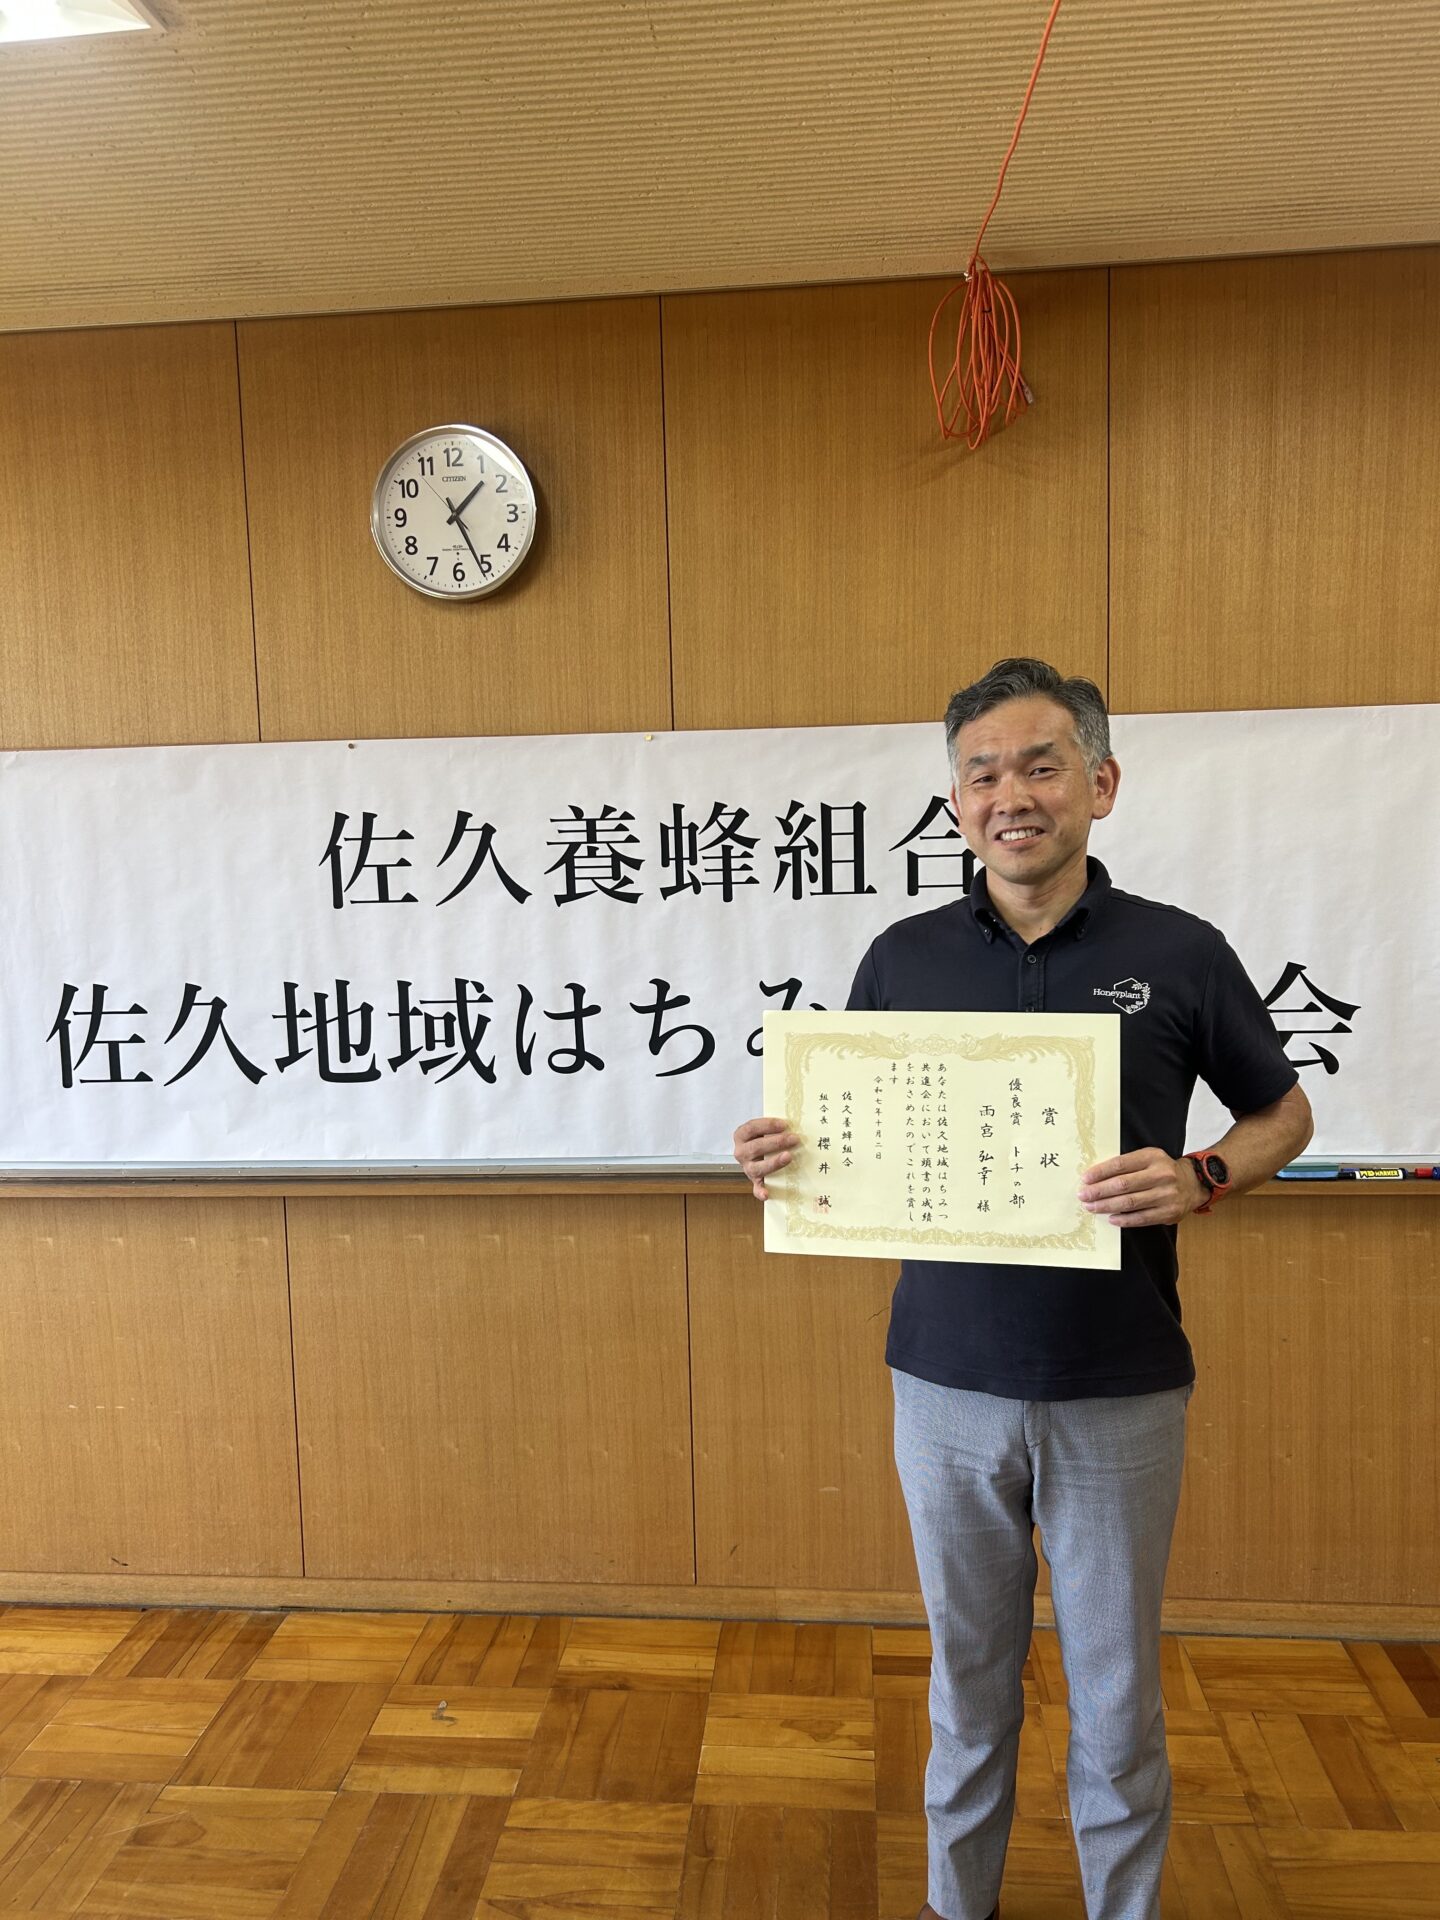 12
1
2
3
4
5
6
7
8
9
10
11
CITIZEN
佐久養蜂組合
佐久地域はちみ
会
Honeyplant
賞状
優良賞 トチの部
雨宮弘幸 様
あなたは佐久地域はちみつ
共進会において頭書の成績
をおさめたのでこれを賞し
ます
令和七年十月二日
佐久養蜂組合
組合長 櫻井 誠
MARKER